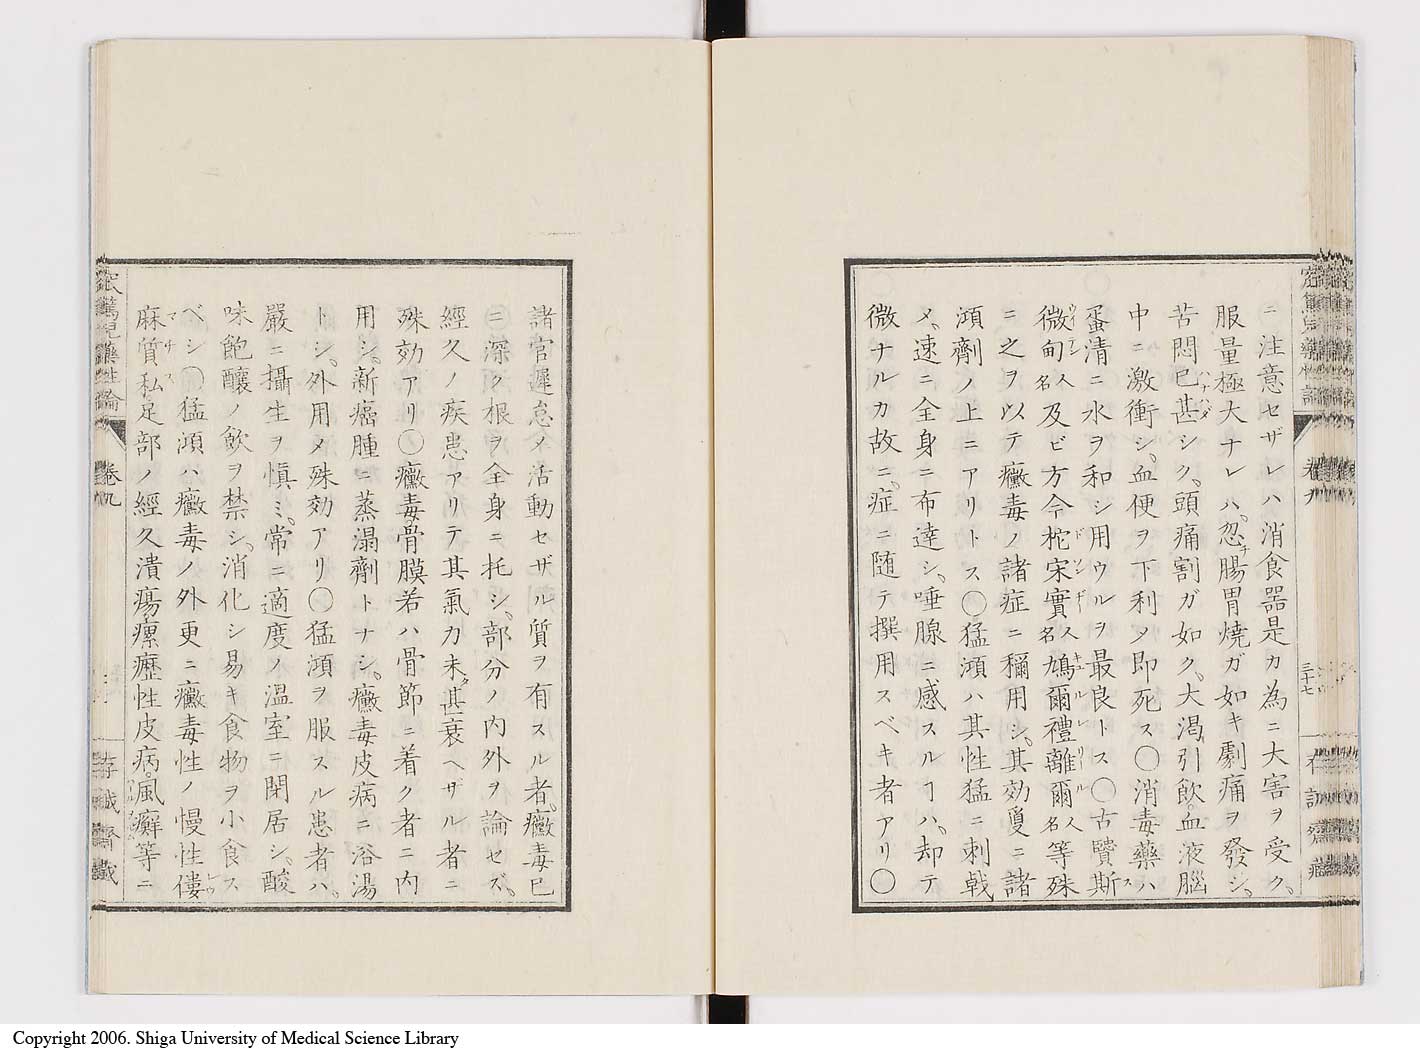 ニ注意セザレハ消食器是カ為ニ大害ヲ受ク、
服量極大ナレハ、忽チ腸胃焼ガ如キ劇痛ヲ發シ、
苦悶已甚シク、頭痛割ガ如ク、大渇引飲血液腦
中ニ激衝シ、血便ヲ下利メ即死ス〇消毒藥ハ
蛋清ニ水ヲ和シ用ウルヲ最良トス〇古贒斯
微甸人名及ビ方今柁宋實人名鳩爾禮離爾人名等殊
ニ之ヲ以テ黴毒ノ諸症ニ稱用シ、其効夐ニ諸
澒劑ノ上ニアリトス〇猛澒ハ其性猛ニ刺戟
メ、速ニ全身ニ布達シ、唾腺ニ感スルヿハ、却テ
微ナルカ故ニ、症ニ随テ撰用スベキ者アリ〇
三十七
諸官遲怠メ活動セザル質ヲ有スル者、黴毒已
ニ深ク根ヲ全身ニ托シ、部分ノ内外ヲ論セズ、
經久ノ疾患アリテ其氣力未甚衰ヘザル者ニ
殊効アリ〇黴毒骨膜若ハ骨節ニ着ク者ニ内
用シ、新瘤腫ニ蒸溻劑トナシ、黴毒皮病ニ浴湯
トシ、外用メ殊効アリ〇猛澒ヲ服スル患者ハ、
嚴ニ攝生ヲ愼ミ、常ニ適度ノ温室ニ閉居シ、酸
味飽釀ノ飲ヲ禁シ、消化シ易キ食物ヲ小食ス
ベシ〇猛澒ハ黴毒ノ外更ニ黴毒性ノ慢性僂
麻質私足部ノ經久潰瘍、瘰癧性皮病、風癬等ニ
窊篤兒藥性論
卷九